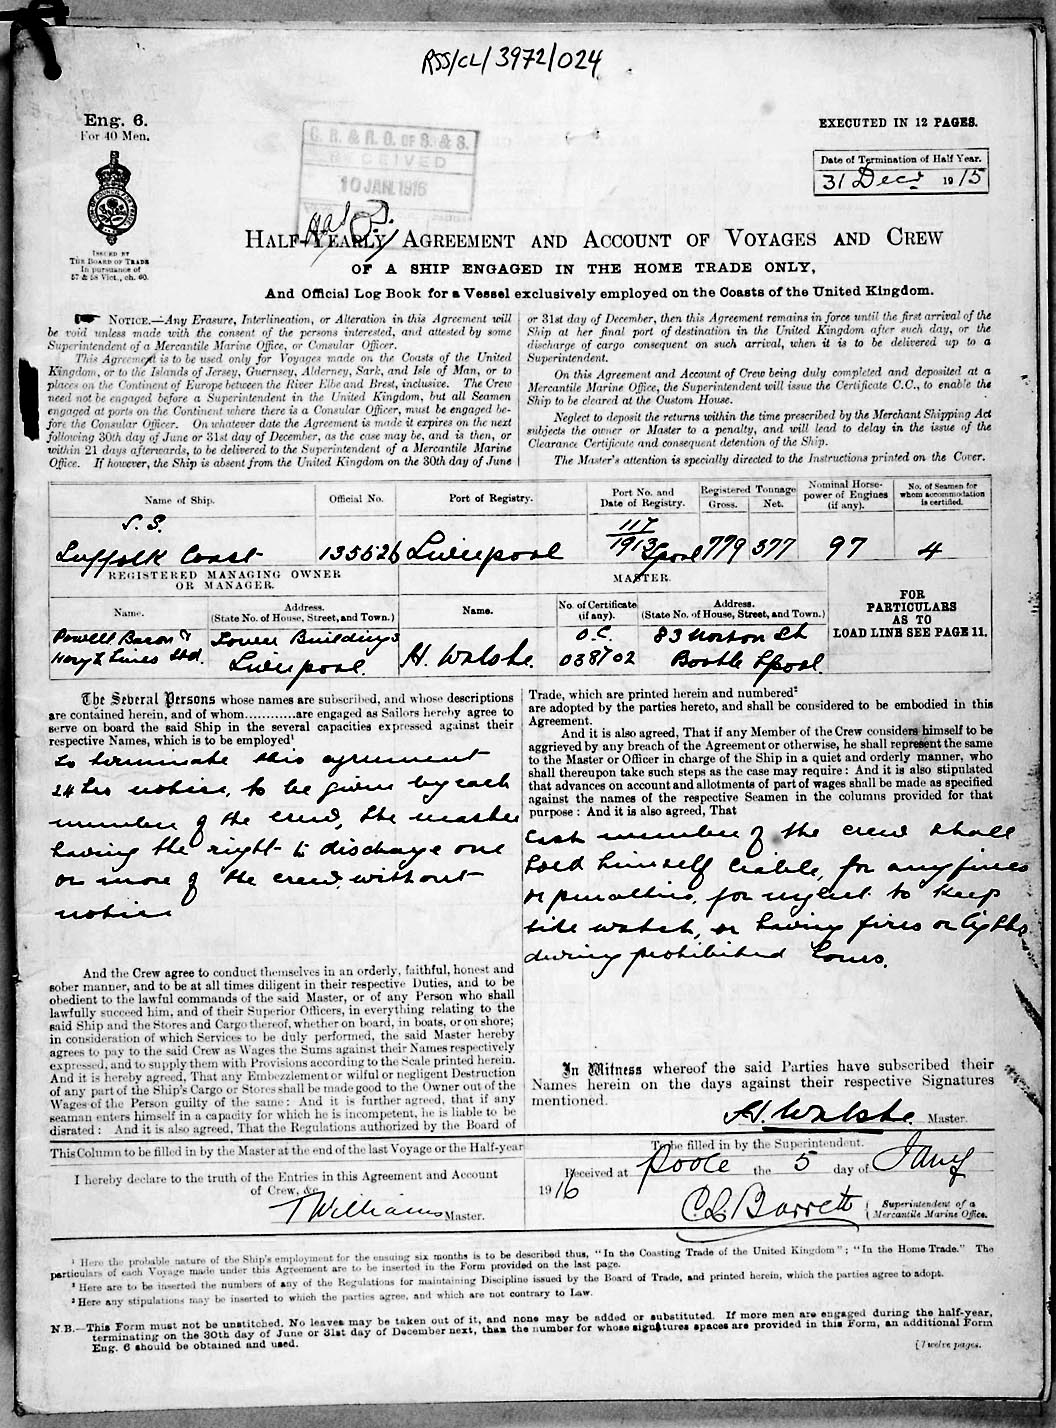 RSS/CL/3972/024
Eng. 6.
For 40 Men.
EXECUTED IN 12 PAGES.
C. R. & R. O. OF S. & S.
RECEIVED
10 JAN. 1916
Date of Termination of Half Year.
31 Decr 1915
ISSUED BY
THE BOARD OF TRADE
In pursuance of
57 & 58 Vict., ch. 60.
HALF-YEARLY AGREEMENT AND ACCOUNT OF VOYAGES AND CREW
OF A SHIP ENGAGED IN THE HOME TRADE ONLY,
And Official Log Book for a Vessel exclusively employed on the Coasts of the United Kingdom.
NOTICE.—Any Erasure, Interlineation, or Alteration in this Agreement will
be void unless made with the consent of the persons interested, and attested by some
Superintendent of a Mercantile Marine Office, or Consular Officer.
This Agreement is to be used only for Voyages made on the Coasts of the United
Kingdom, or to the Islands of Jersey, Guernsey, Alderney, Sark, and Isle of Man, or to
places on the Continent of Europe between the River Elbe and Brest, inclusive. The Crew
need not be engaged before a Superintendent in the United Kingdom, but all Seamen
engaged at ports on the Continent where there is a Consular Officer, must be engaged be-
fore the Consular Officer. On whatever date the Agreement is made it expires on the next
following 30th day of June or 31st day of December, as the case may be, and is then, or
within 21 days afterwards, to be delivered to the Superintendent of a Mercantile Marine
Office. If however, the Ship is absent from the United Kingdom on the 30th day of June
or 31st day of December, then this Agreement remains in force until the first arrival of the
Ship at her final port of destination in the United Kingdom after such day, or the
discharge of cargo consequent on such arrival, when it is to be delivered up to a
Superintendent.
On this Agreement and Account of Crew being duly completed and deposited at a
Mercantile Marine Office, the Superintendent will issue the Certificate C.C., to enable the
Ship to be cleared at the Custom House.
Neglect to deposit the returns within the time prescribed by the Merchant Shipping Act
subjects the owner or Master to a penalty, and will lead to delay in the issue of the
Clearance Certificate and consequent detention of the Ship.
The Master's attention is specially directed to the Instructions printed on the Cover.
Name of Ship. Official No. Port of Registry. Port No. and Date of Registry. Registered Tonnage Gross. Net. Nominal Horse-power of Engines (if any). No. of Seamen for whom accommodation is certified.
S.S.
Suffolk Coast 135526 Liverpool 117/1913 Lpool 779 377 97 4
REGISTERED MANAGING OWNER
OR MANAGER.
MASTER.
Name. Address. (State No. of House, Street, and Town.) Name. No. of Certificate (if any). Address. (State No. of House, Street, and Town.)
FOR
PARTICULARS
AS TO
LOAD LINE SEE PAGE 11.
Powell Bacon & Tower Buildings O.C. 83 Norton St
Hough Lines Ltd. Liverpool. H. Walshe. 038702 Bootle Lpool.
The Several Persons whose names are subscribed, and whose descriptions
are contained herein, and of whom............are engaged as Sailors hereby agree to
serve on board the said Ship in the several capacities expressed against their
respective Names, which is to be employed¹
to terminate this agreement
24 hrs notice, to be given by each
member of the crew, the master
having the right to discharge one
or more of the crew without
notice
And the Crew agree to conduct themselves in an orderly, faithful, honest and
sober manner, and to be at all times diligent in their respective Duties, and to be
obedient to the lawful commands of the said Master, or of any Person who shall
lawfully succeed him, and of their Superior Officers, in everything relating to the
said Ship and the Stores and Cargo thereof, whether on board, in boats, or on shore;
in consideration of which Services to be duly performed, the said Master hereby
agrees to pay to the said Crew as Wages the Sums against their Names respectively
expressed, and to supply them with Provisions according to the Scale printed herein.
And it is hereby agreed, That any Embezzlement or wilful or negligent Destruction
of any part of the Ship's Cargo or Stores shall be made good to the Owner out of the
Wages of the Person guilty of the same: And it is further agreed, that if any
seaman enters himself in a capacity for which he is incompetent, he is liable to be
disrated: And it is also agreed, That the Regulations authorized by the Board of
Trade, which are printed herein and numbered²
are adopted by the parties hereto, and shall be considered to be embodied in this
Agreement.
And it is also agreed, That if any Member of the Crew considers himself to be
aggrieved by any breach of the Agreement or otherwise, he shall represent the same
to the Master or Officer in charge of the Ship in a quiet and orderly manner, who
shall thereupon take such steps as the case may require: And it is also stipulated
that advances on account and allotments of part of wages shall be made as specified
against the names of the respective Seamen in the columns provided for that
purpose: And it is also agreed, That
Each member of the crew shall
hold himself liable, for any fines
or penalties, for neglect to keep
fire watch, or having fires or lights
during prohibited hours.
In Witness whereof the said Parties have subscribed their
Names herein on the days against their respective Signatures
mentioned.
H. Walshe. Master.
This Column to be filled in by the Master at the end of the last Voyage or the Half-year
I hereby declare to the truth of the Entries in this Agreement and Account
of Crew, &c.
T Williams Master.
To be filled in by the Superintendent.
Received at Poole the 5 day of Jany
1916
C L Barrett { Superintendent of a
Mercantile Marine Office.
¹ Here the probable nature of the Ship's employment for the ensuing six months is to be described thus, "In the Coasting Trade of the United Kingdom"; "In the Home Trade." The
particulars of each Voyage made under this Agreement are to be inserted in the Form provided on the last page.
² Here are to be inserted the numbers of any of the Regulations for maintaining Discipline issued by the Board of Trade, and printed herein, which the parties agree to adopt.
³ Here any stipulations may be inserted to which the parties agree, and which are not contrary to Law.
N.B.—This Form must not be unstitched. No leaves may be taken out of it, and none may be added or substituted. If more men are engaged during the half-year,
terminating on the 30th day of June or 31st day of December next, than the number for whose signatures spaces are provided in this Form, an additional Form
Eng. 6 should be obtained and used.
[Twelve pages.